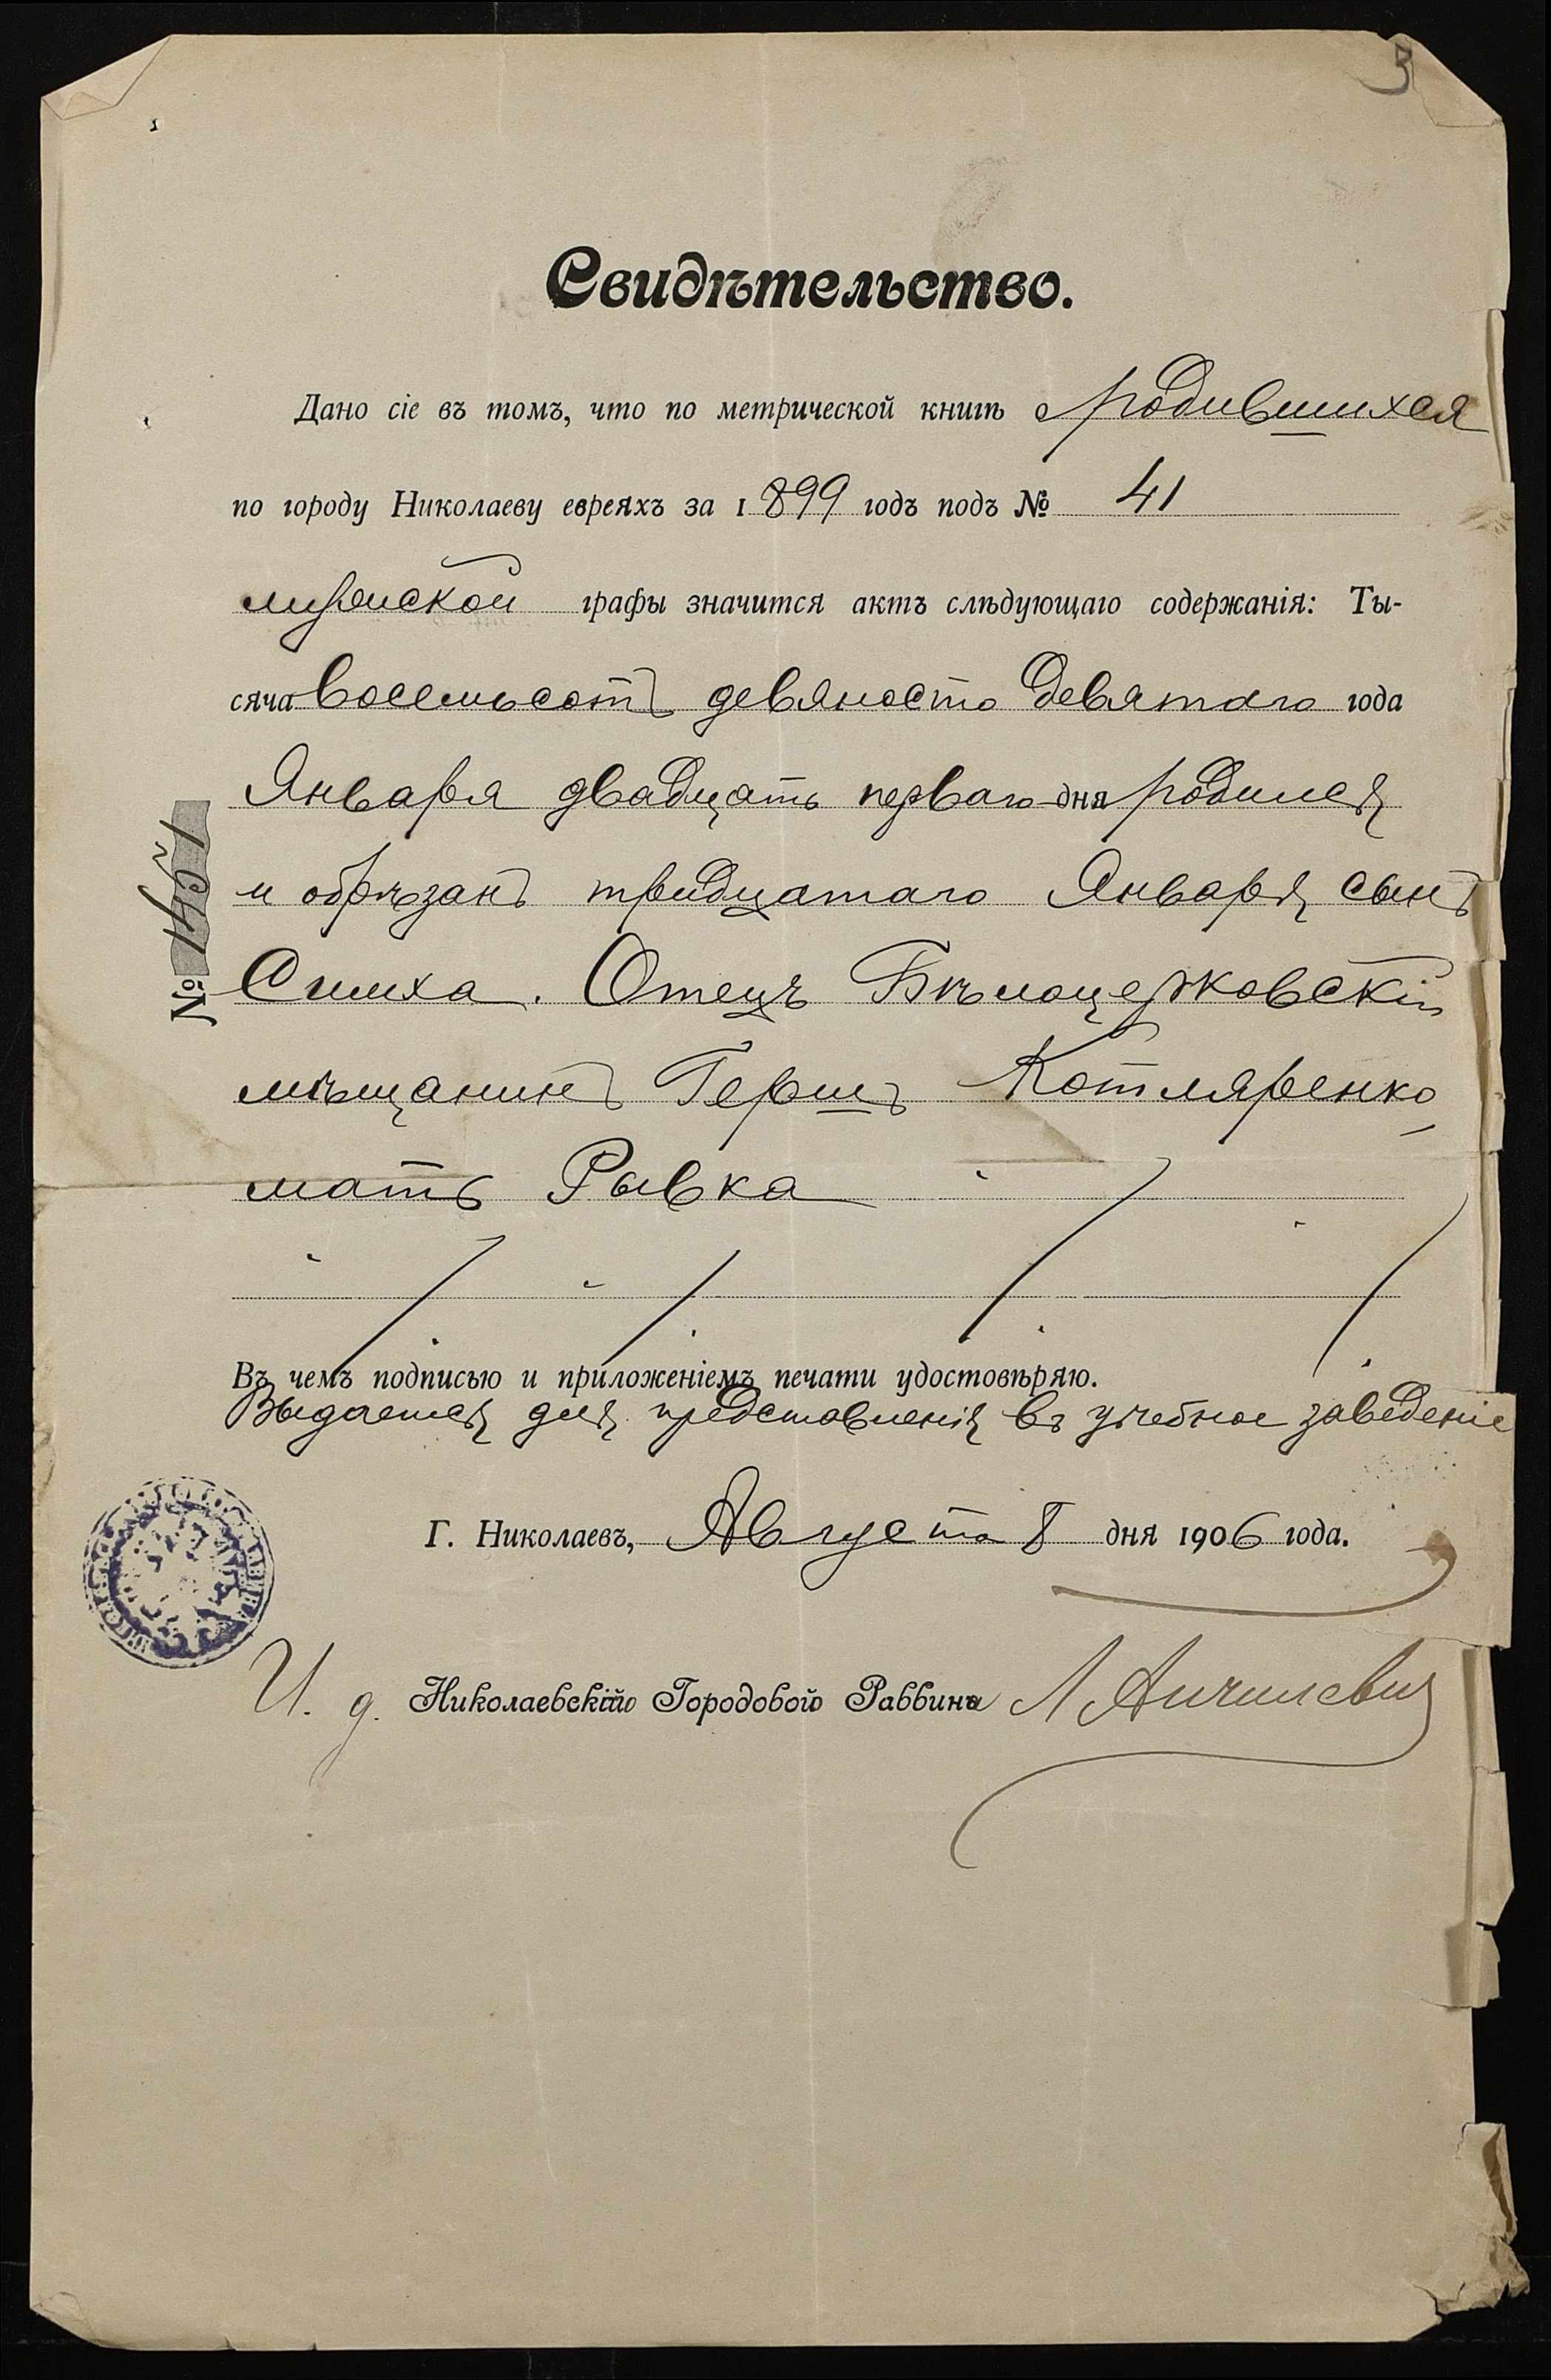 3
Свидѣтельство.
Дано сіе въ томъ, что по метрической книгѣ о родившихся
по городу Николаеву евреяхъ за 1899 годъ подъ № 41
мужской графы значится актъ слѣдующаго содержанія: Ты-
сяча восемьсотъ девяносто девятаго года
Января двадцать перваго дня родился
и обрѣзанъ тридцатаго Января сынъ
Симха. Отецъ Бѣлоцерковскій
мѣщанинъ Гершъ Котляренко
мать Рывка
Въ чемъ подписью и приложеніемъ печати удостовѣряю.
Выдается для представленія въ учебное заведеніе
Г. Николаевъ, Августа 8 дня 1906 года.
И. д. Николаевскій Городовой Раввинъ
№